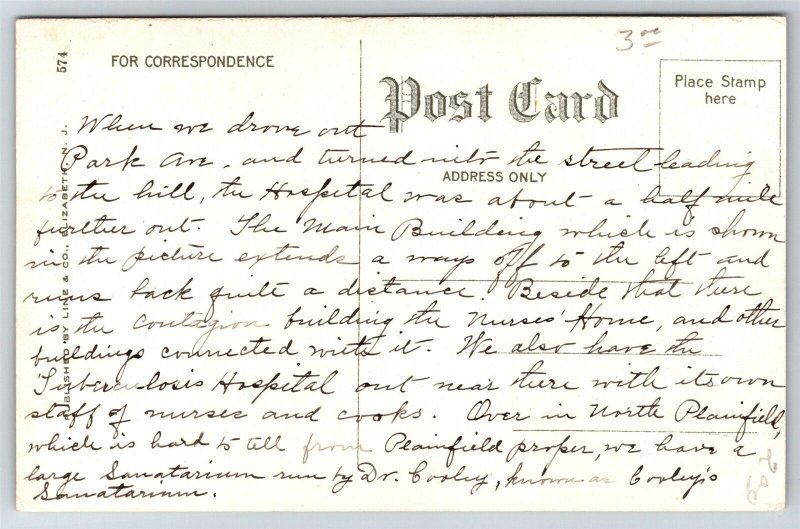 3.00
574
FOR CORRESPONDENCE
Post Card
Place Stamp
here
ADDRESS ONLY
PUBLISHED BY LINE & CO., ELIZABETH, N. J.
When we drove out
Park Ave. and turned into the street leading
to the hill, the Hospital was about a half mile
further out. The Main Building which is shown
in the picture extends a ways off to the left and
runs back quite a distance. Beside that there
is the contagion building the Nurses' Home, and other
buildings connected with it. We also have the
Tuberculosis Hospital out near there with its own
staff of nurses and cooks. Over in North Plainfield,
which is hard to tell from Plainfield proper, we have a
large Sanatarium run by Dr. Cooley, known as Cooley's
Sanatarium.